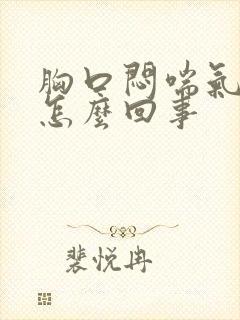 胸口悶喘氣
怎麼回事
裴悦冉